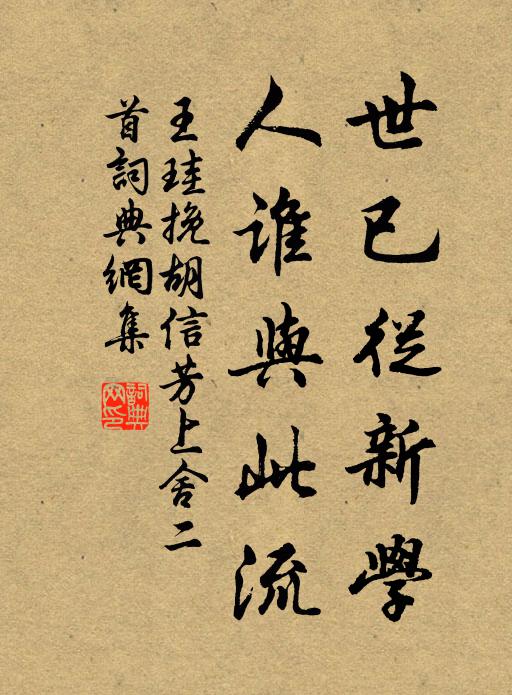 世已從新學
人誰與此流
王珪挽胡信芳上舍二
首詞典網集
詞典
网印